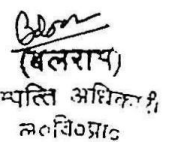 (बलराम)
म्पत्ति अधिकारी
ल०वि०प्रा०